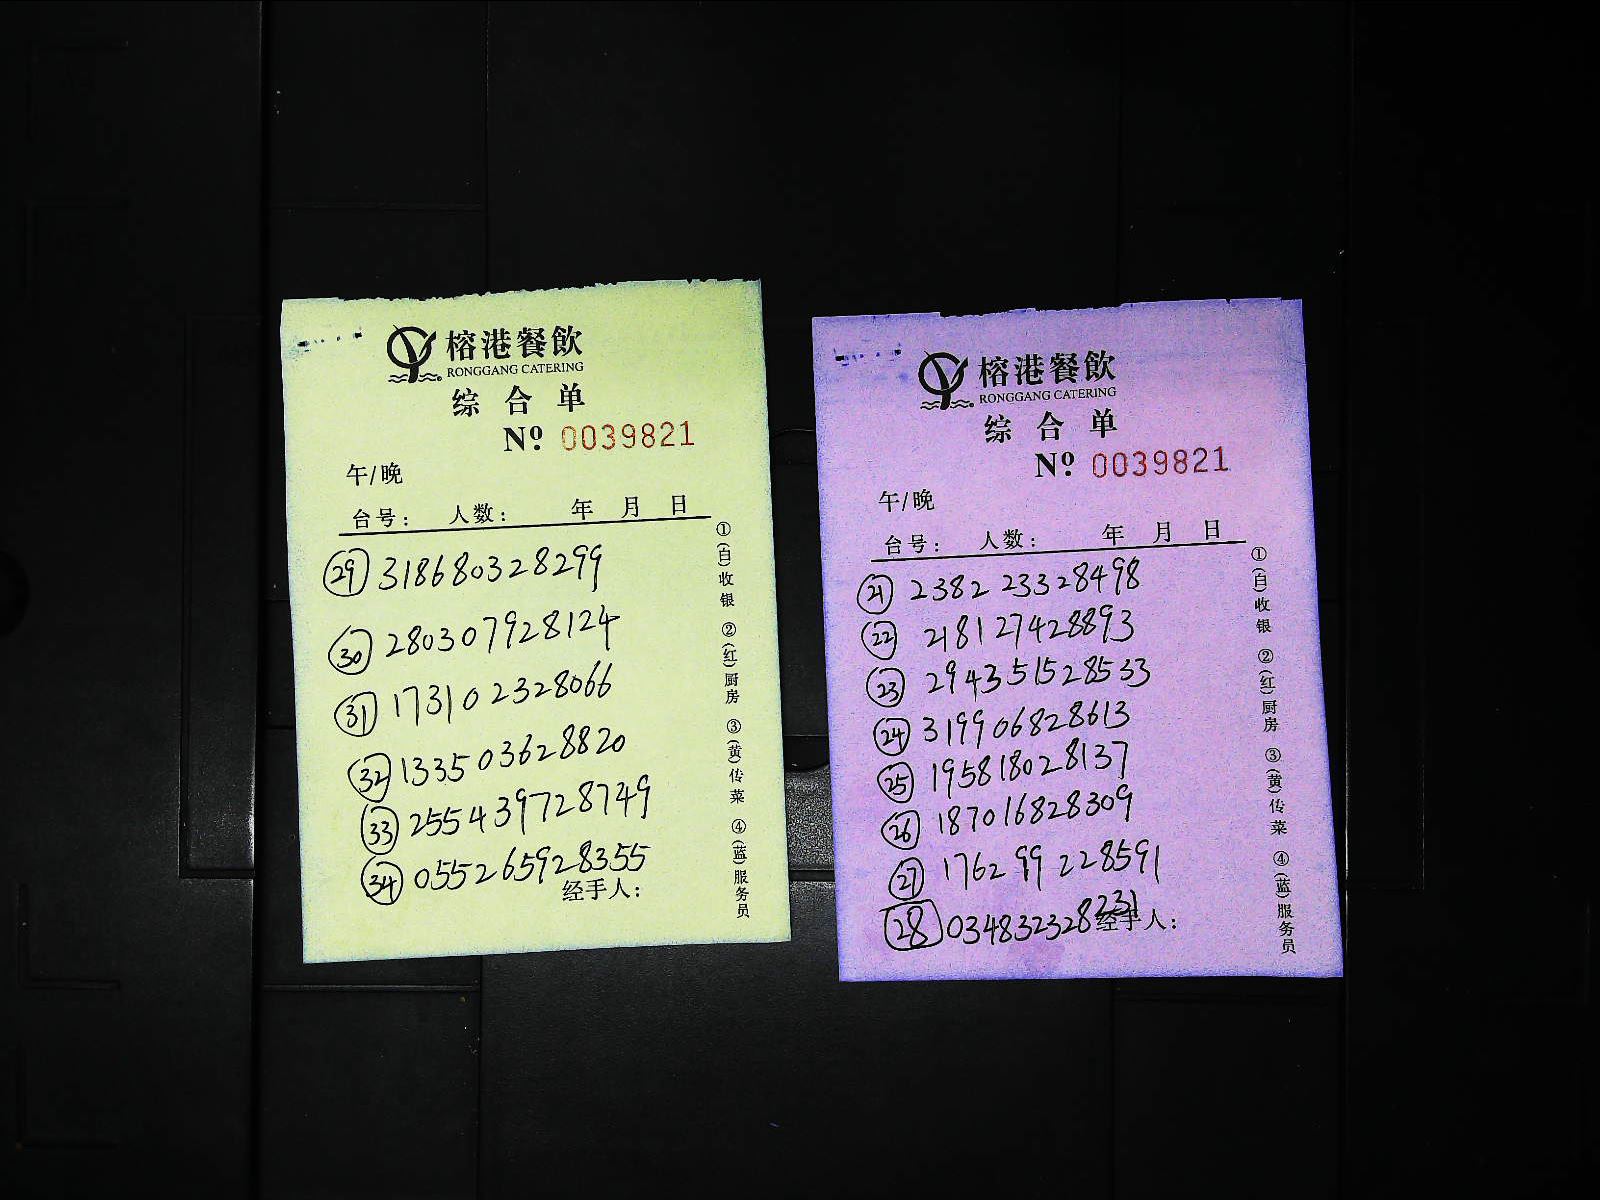 榕港餐飲
RONGGANG CATERING
综合单
Nº 0039821
午/晚
台号： 人数： 年 月 日
㉙ 318680328299
㉚ 280307928124
㉛ 173102328066
㉜ 133503628820
㉝ 255439728749
㉞ 055265928355
经手人：
①(白)收银 ②(红)厨房 ③(黄)传菜 ④(蓝)服务员
榕港餐飲
RONGGANG CATERING
综合单
Nº 0039821
午/晚
台号： 人数： 年 月 日
㉑ 238223328498
㉒ 218127428893
㉓ 294351528533
㉔ 319906828613
㉕ 195818028137
㉖ 187016828309
㉗ 176299228591
28 034832328231
经手人：
①(白)收银 ②(红)厨房 ③(黄)传菜 ④(蓝)服务员